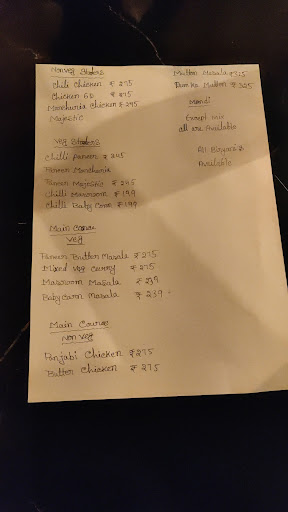 Nonveg Staters
Chilli Chicken ₹ 275
Chicken 65 ₹ 275
Manchuria Chicken ₹ 295
Majestic
Veg Staters
Chilli Paneer ₹ 245
Paneer Manchuria
Paneer Majestic ₹ 245
Chilli Masroom ₹ 199
Chilli Baby Corn ₹ 199
Main Course
Veg
Paneer Butter Masala ₹ 275
Mixed Veg Curry ₹ 275
Masroom Masala ₹ 239
Baby Corn Masala ₹ 239
Main Course
Non Veg
Panjabi Chicken ₹ 275
Butter Chicken ₹ 275
Mutton Masala ₹ 325
Dum ka Mutton ₹ 325
Mandi
Except mix
all are Available
All Biryani's
Available